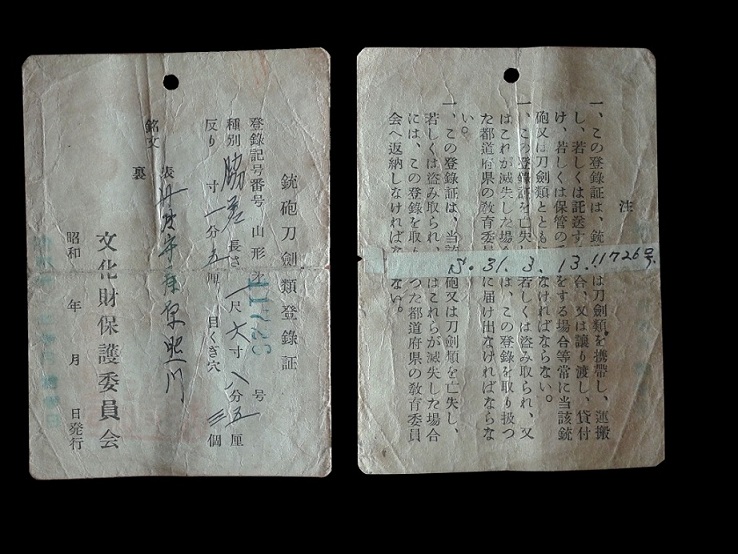 銃砲刀劍類登錄証
登錄記号番号 山形 第 11726 号
種別 脇差 長さ 一尺六寸八分五厘
反り 寸一分五厘 目くぎ穴 三個
銘文 表 丹波守藤原照門
裏
昭和 年 月 日発行
文化財保護委員会
注
一、この登録証は、銃 は刀劍類を携帯し、運搬
し、若しくは託送す 合、又は譲り渡し、貸付
け、若しくは保管の をする場合等常に当該銃
砲又は刀劍類ととも なければならない。
一、この登録証を亡失し 若しくは盗み取られ、又
はこれが滅失した場 は、この登録を取り扱つ
た都道府県の敎育委員 に届け出なければならな
い。
一、この登録証は、当該 砲又は刀劍類を亡失し、
若しくは盗み取られ、 はこれらが滅失した場合
には、この登録を取 つた都道府県の敎育委員
会へ返納しなければな ない。
S. 31. 3. 13. 11726号